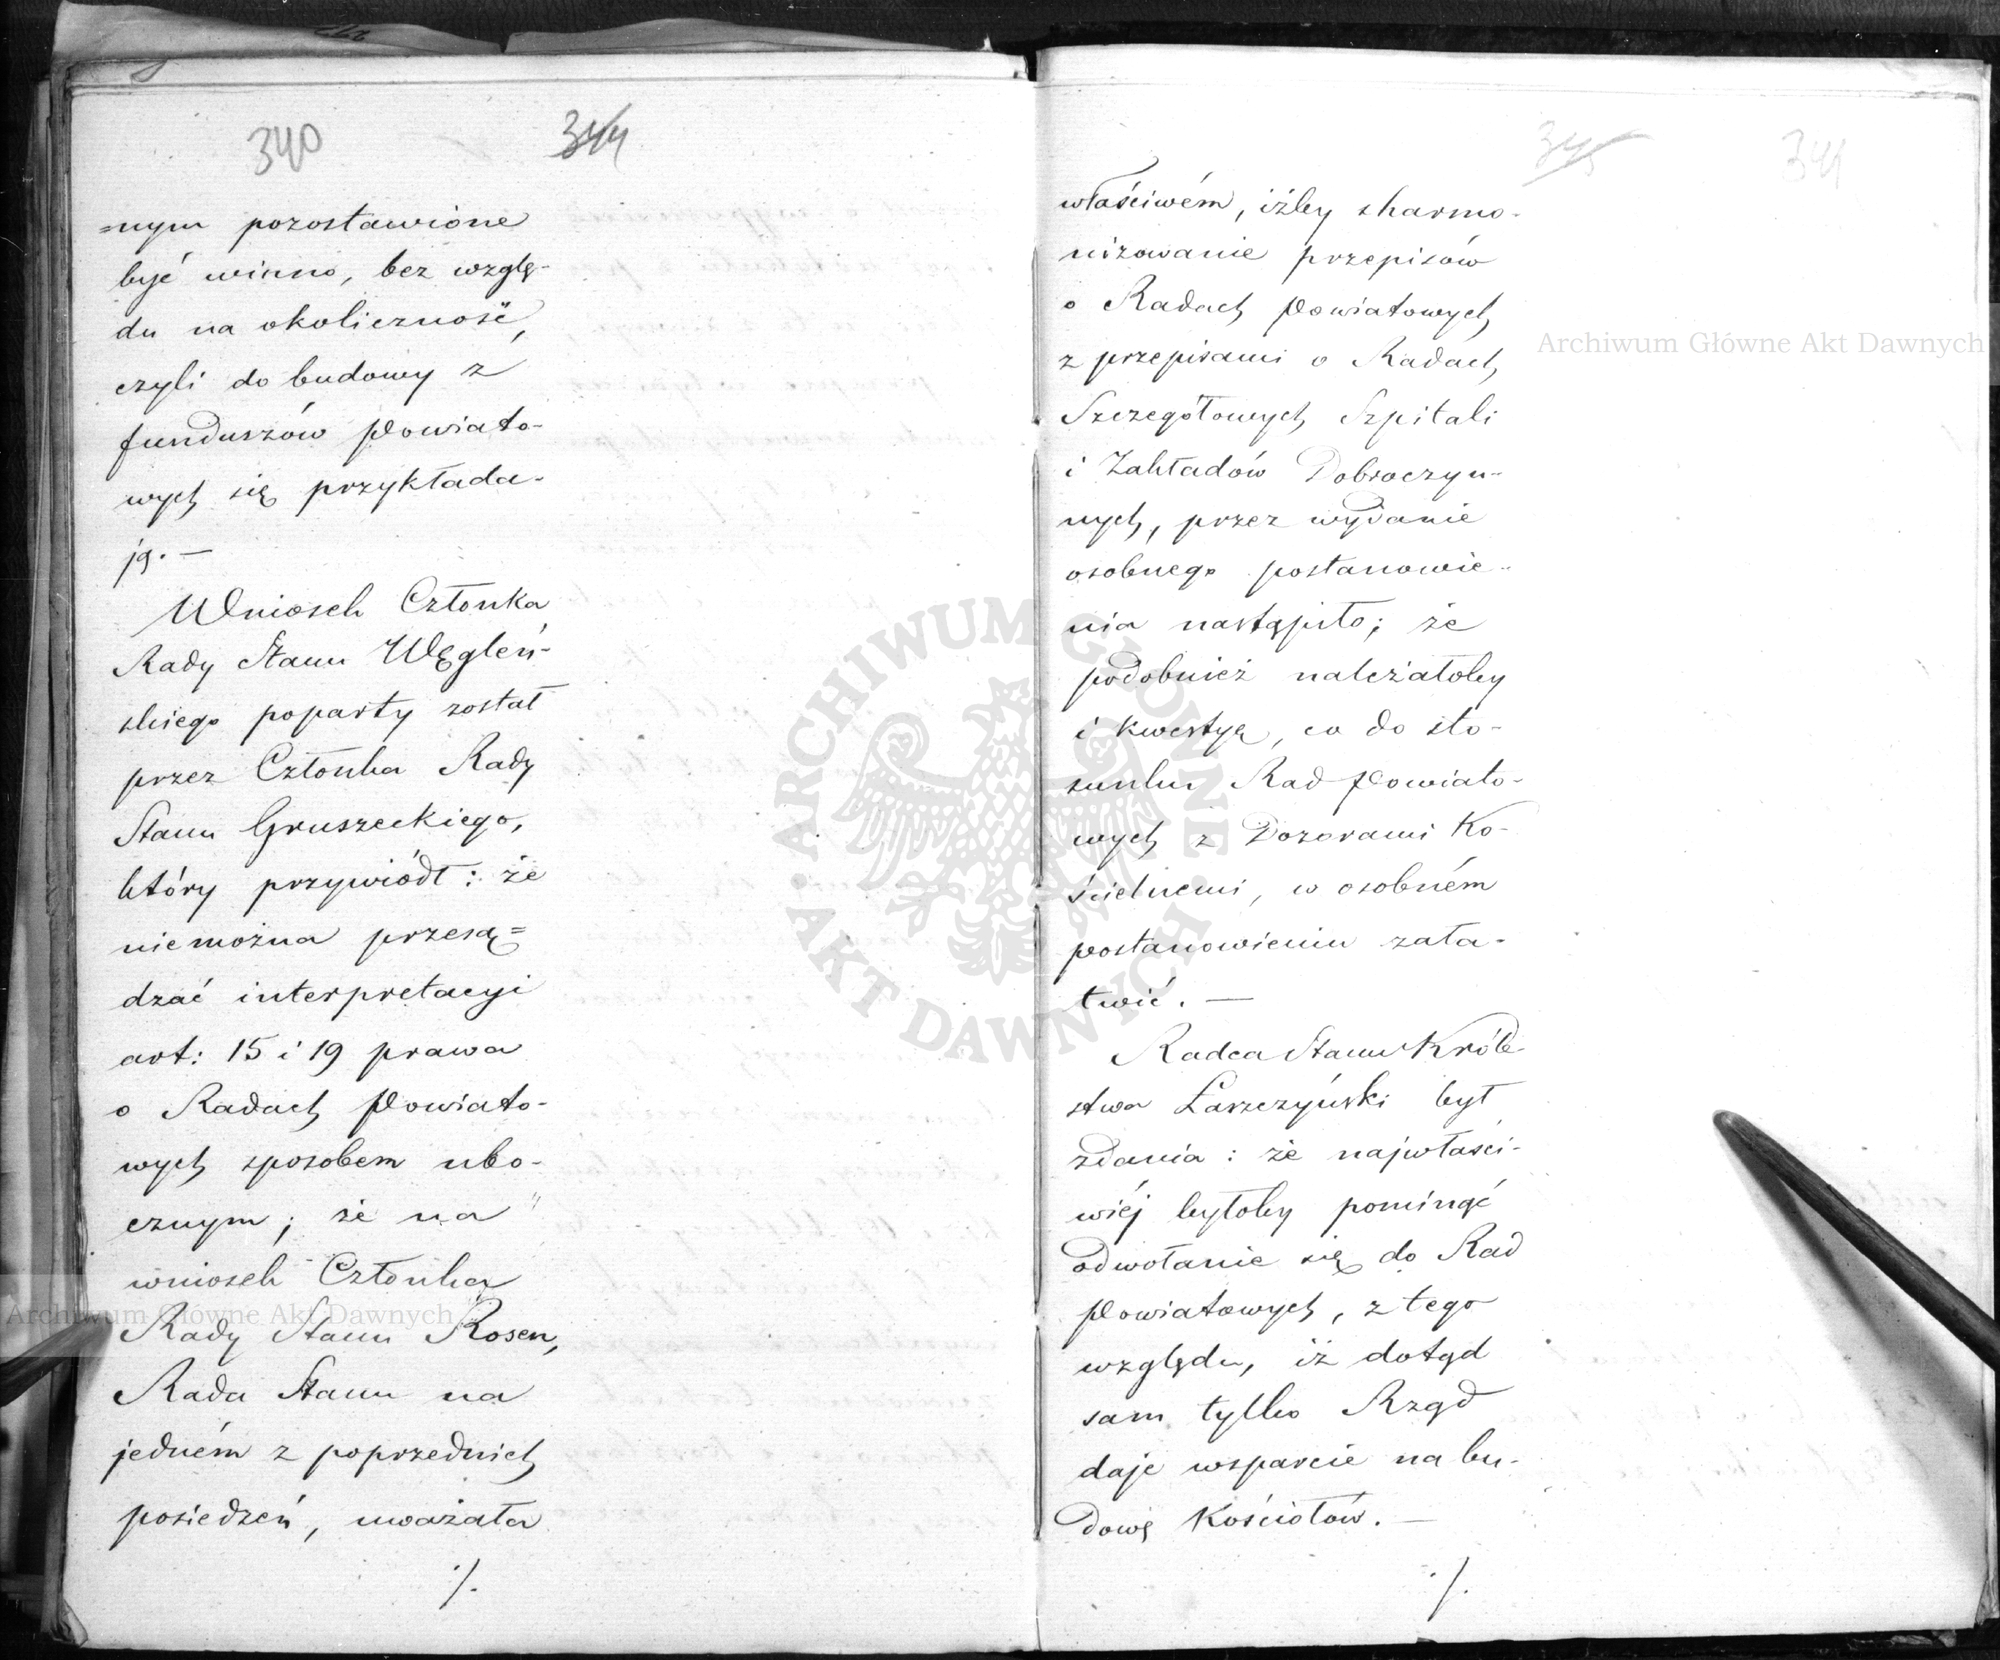 340 344
=nym pozostawione
być winno, bez wzglę-
du na okoliczność,
czyli do budowy z
funduszów Powiato-
wych się przykłada-
ją. —
Wniosek Członka
Rady Stanu Węgleń-
skiego poparty został
przez Członka Rady
Stanu Gruszeckiego,
który przywiódł: że
niemożna przesą=
dzać interpretacyi
art: 15 i 19 prawa
o Radach Powiato-
wych sposobem ubo-
cznym; że na
wniosek Członka
Rady Stanu Rosen,
Rada Stanu na
jedném z poprzednich
posiedzeń, uważała
./.
345 341
właściwém, iżby sharmo-
nizowanie przepisów
o Radach Powiatowych
z przepisami o Radach
Szczegółowych Szpitali
i Zakładów Dobroczyn-
nych, przez wydanie
osobnego postanowie-
nia nastąpiło; że
podobnież należałoby
i kwestyą, co do sto-
sunku Rad Powiato-
wych z Dozorami Ko-
ścielnemi, w osobném
postanowieniu zała-
twić. —
Radca Stanu Króle-
stwa Łaszczyński był
zdania: że najwłaści-
wiéj byłoby pominąć
odwołanie się do Rad
Powiatowych, z tego
względu, iż dotąd
sam tylko Rząd
daje wsparcie na bu-
dowę Kościołów. —
./.
Archiwum Główne Akt Dawnych
Archiwum Główne Akt Dawnych
ARCHIWUM GŁÓWNE • AKT DAWNYCH •